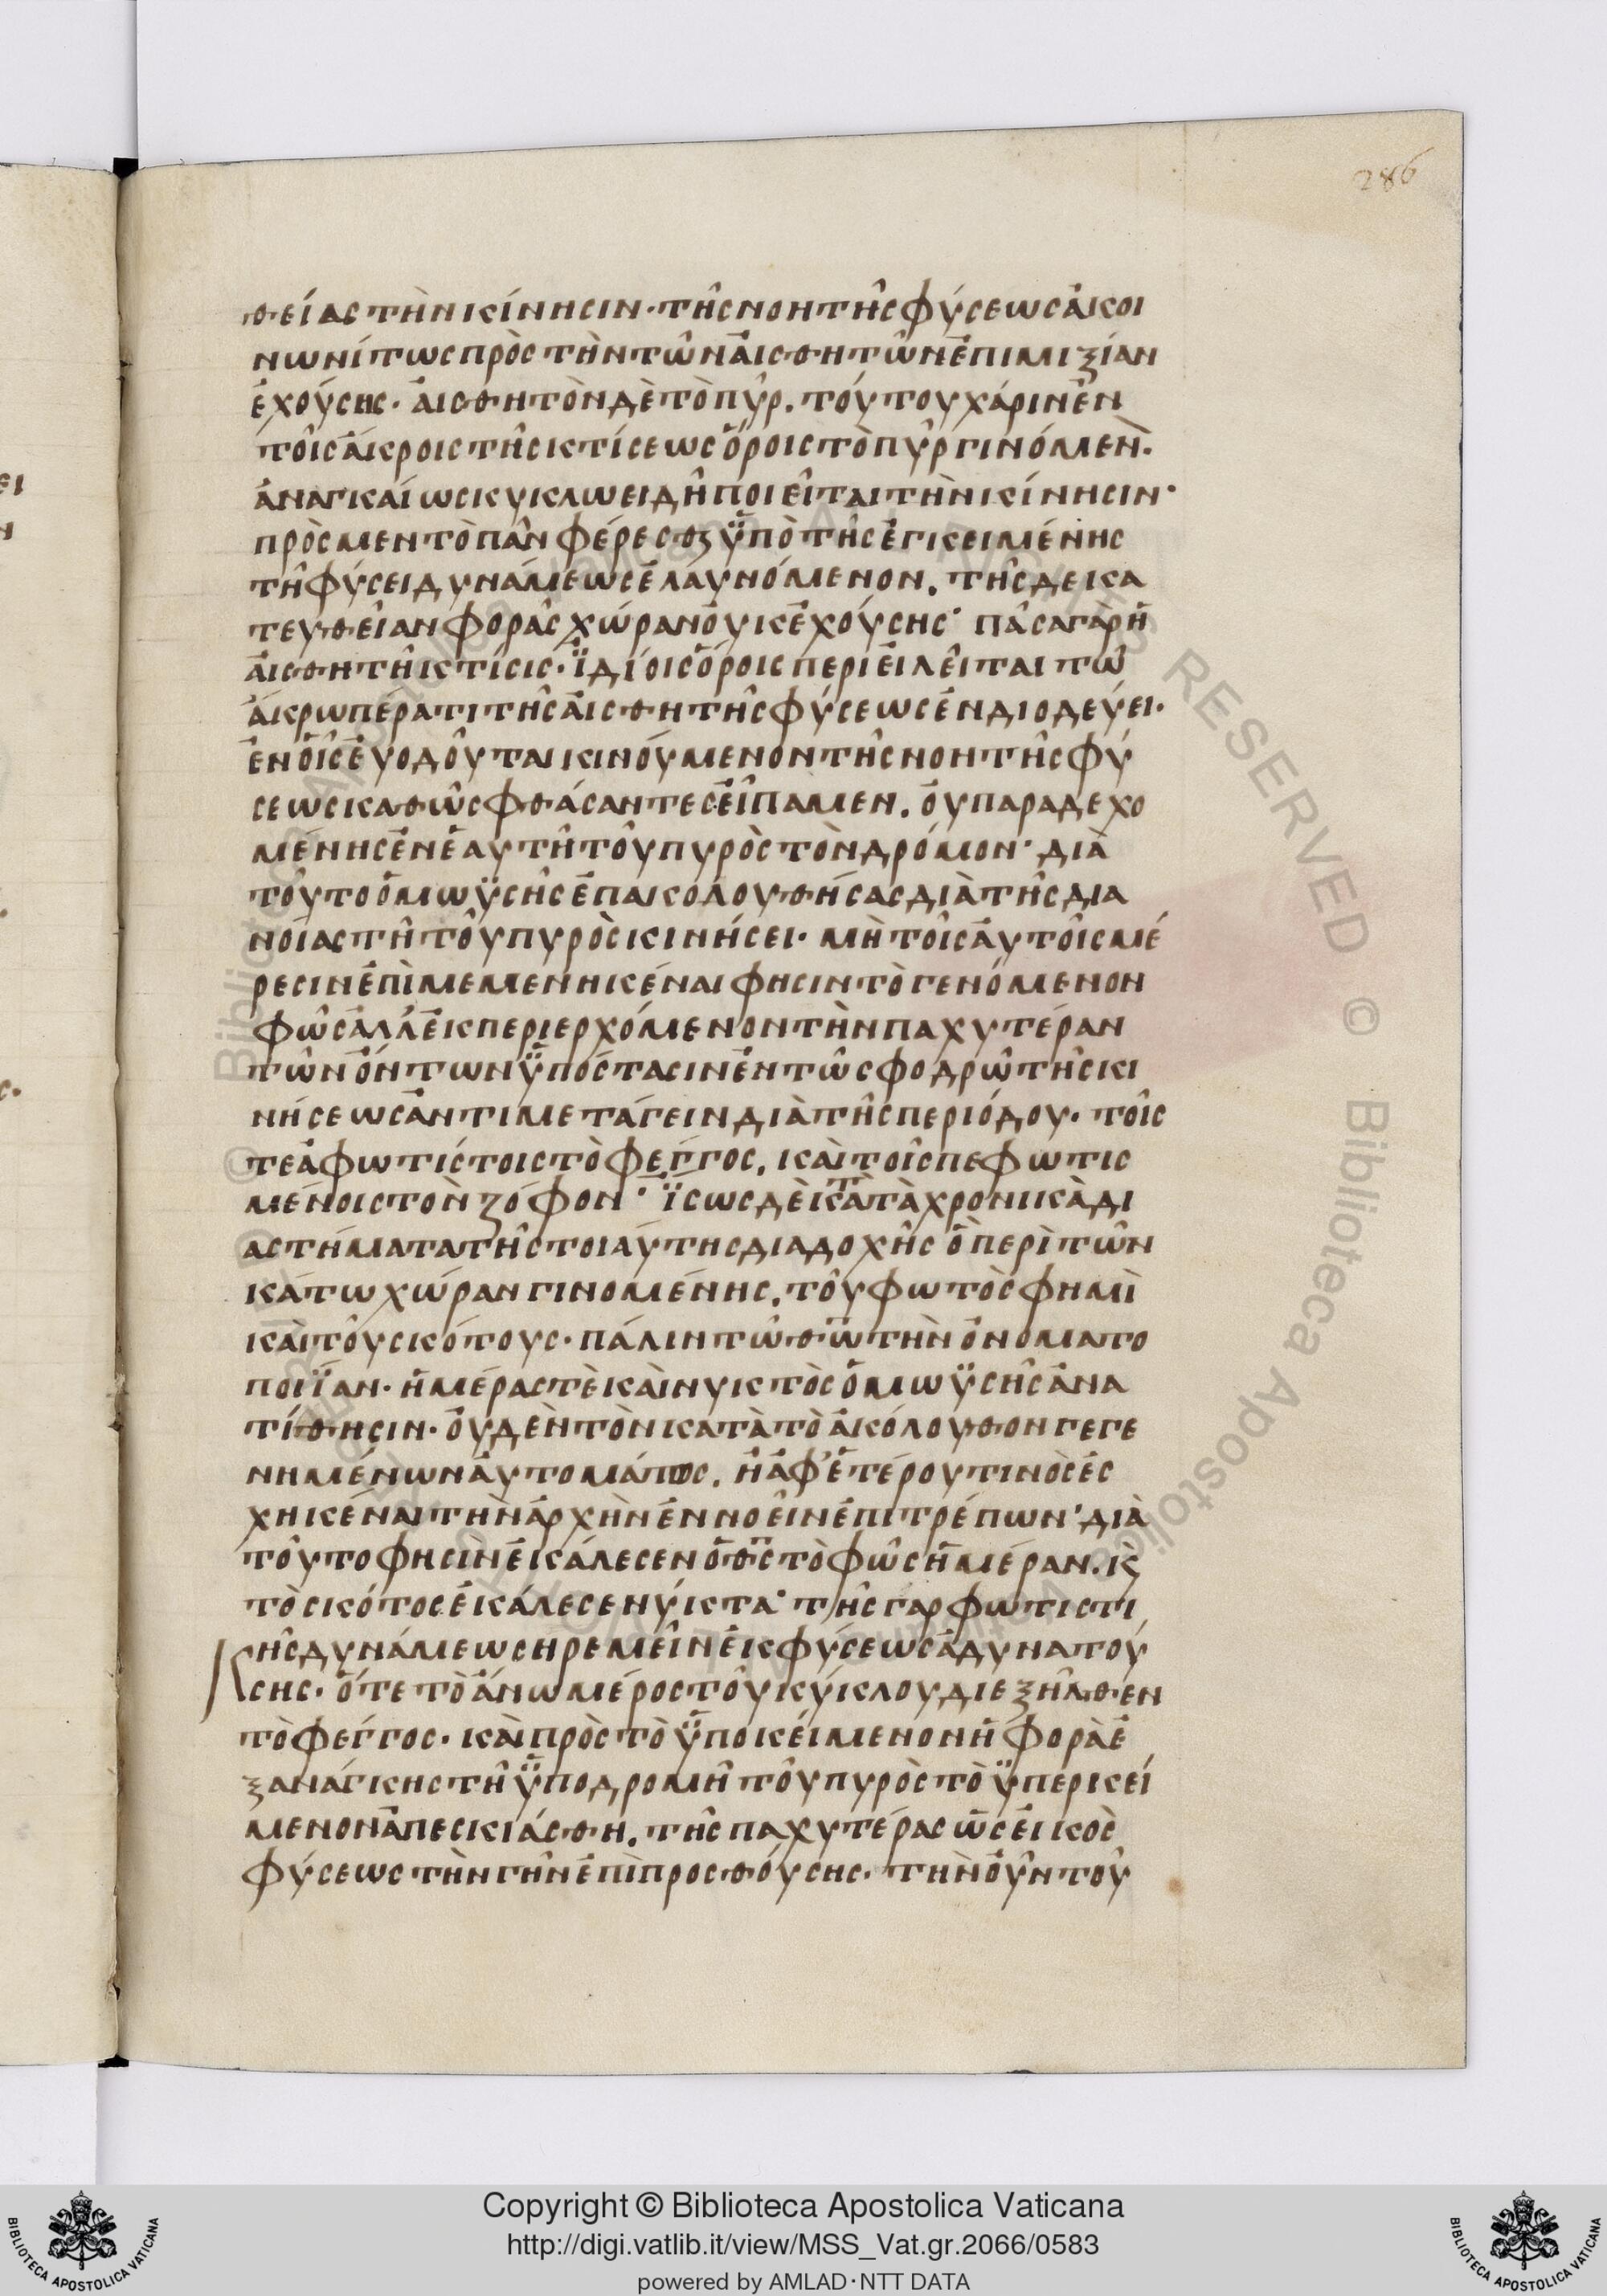 286
θείας τὴν κίνησιν· τῆς νοητῆς φύσεως ἀκοι
νωνίτως πρὸς τὴν τῶν ἀισθητῶν ἐπιμιξίαν
ἐχούσης· ἀισθητὸν δὲ τὸ πῦρ. τούτου χάριν ἐν
τοῖς ἄκροις τῆς κτίσεως ὅροις τὸ πῦρ γινόμεν̀.
ἀναγκαίως κυκλωειδῆ ποιεῖται τὴν κίνησιν·
πρὸς μεν τὸ πᾶν φέρεσθϗ ϋπὸ τῆς ἐγκειμένης
τῆ φύσει δυνάμεως ἐλαυνόμενον. τῆς δε κα
τευθεῖαν φορᾶς χώραν οὐκ ἐχούσης· πᾶσα γὰρ ἡ
ἀισθητὴ κτίσις· ϊδίοις ὅροις περιειλεῖται τῶ
ἄκρω πέρατι τῆς ἀισθητῆς φύσεως ἐνδιοδεύει·
ἐν οἷς ἐυοδοῦται κινούμενον τῆς νοητῆς φύ
σεως καθὼς φθάσαντες εἴπαμεν. οὐ παραδεχο
μένης ἐν ἑαυτῆ τοῦ πυρὸς τὸν δρόμον· διὰ
τοῦτο ὁ μωϋσῆς ἐπακολουθήσας διὰ τῆς δια
νοίας τῆ τοῦ πυρὸς κινήσει· μὴ τοῖς ἀυτοῖς μέ
ρεσιν ἐπὶμεμενηκέναι φησιν τὸ γενόμενον
φῶς ἀλλ' ἐκπεριερχόμενον τὴν παχυτέραν
τῶν ὄντων ϋπόστασιν ἐν τῶ σφοδρῶ τῆς κι
νήσεως ἀντιμετάγειν διὰ τῆς περιόδου· τοῖς
τε ἀφωτίστοις τὸ φέγγος. καὶ τοῖς πεφωτις
μένοις τὸν ζόφον· ϊσως δὲ κατὰ τὰ χρονικὰ δι
αστήματα τῆς τοιάυτης διαδοχῆς ὃ περὶ τῶν
κάτω χώραν γινομένης. τοῦ φωτὸς φημὶ
καὶ τοῦ σκότους· πάλιν τῶ θ̅ω̅ τὴν ὀνοματο
ποιϊαν· ἡμέρας τὲ καὶ νυκτὸς ὁ μωϋσῆς ἀνα
τίθησιν· οὐδὲν τὸν κατὰ τὸ ἀκόλουθον γεγε
νημένων ἀυτομάτως. ἢ ἀφ' ἑτέρου τινὸς ἐς
χηκέναι τὴν ἀρχὴν ἐννοεῖν ἐπιτρέπων· διὰ
τοῦτο φησὶν ἐκάλεσεν ὁ θ̅ς̅ τὸ φῶς ἡμέραν. κ̀
τὸ σκότος ἐκάλεσε νύκτα· τῆς γαρ φωτιστι
κῆς δυνάμεως ηρεμεῖν ἐκ φύσεως ἀδυνατού
σης. ὅτε τὸ ἄνω μέρος τοῦ κύκλου διεξῆλθεν
τὸ φέγγος· καὶ πρὸς τὸ ϋποκείμενον ἡ φορὰ ἐ
ξ ανάγκης τῆ ϋποδρομῆ τοῦ πυρὸς τὸ ϋπερκεί
μενον ἀπεσκιάσθη. τῆς παχυτέρας ὡς ἐικὸς
φύσεως τὴν γῆν ἐπὶπροσθόυσης· τὴν οὖν τοῦ
Copyright © Biblioteca Apostolica Vaticana
http://digi.vatlib.it/view/MSS_Vat.gr.2066/0583
powered by AMLAD·NTT DATA